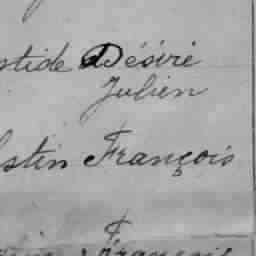 stide Désiré
Julien
lstin François
François